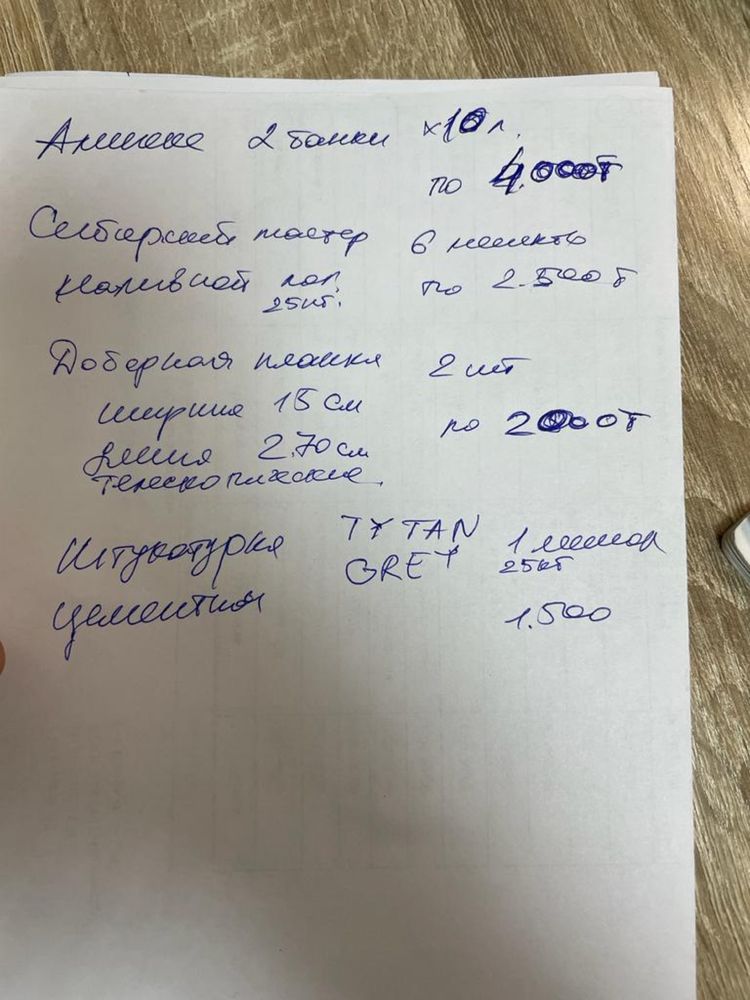 2 банки х10 л.
по 4.000Т
Сибирский мастер 6 мешков
Наливной пол. по 2.500Т
25кг.
Доборная планка 2 шт
ширина 15 см
по 2000Т
длина 2.70 см
телескопические.
Штукатурка TYTAN 1 мешок
GREY 25кг
цементная
1.500